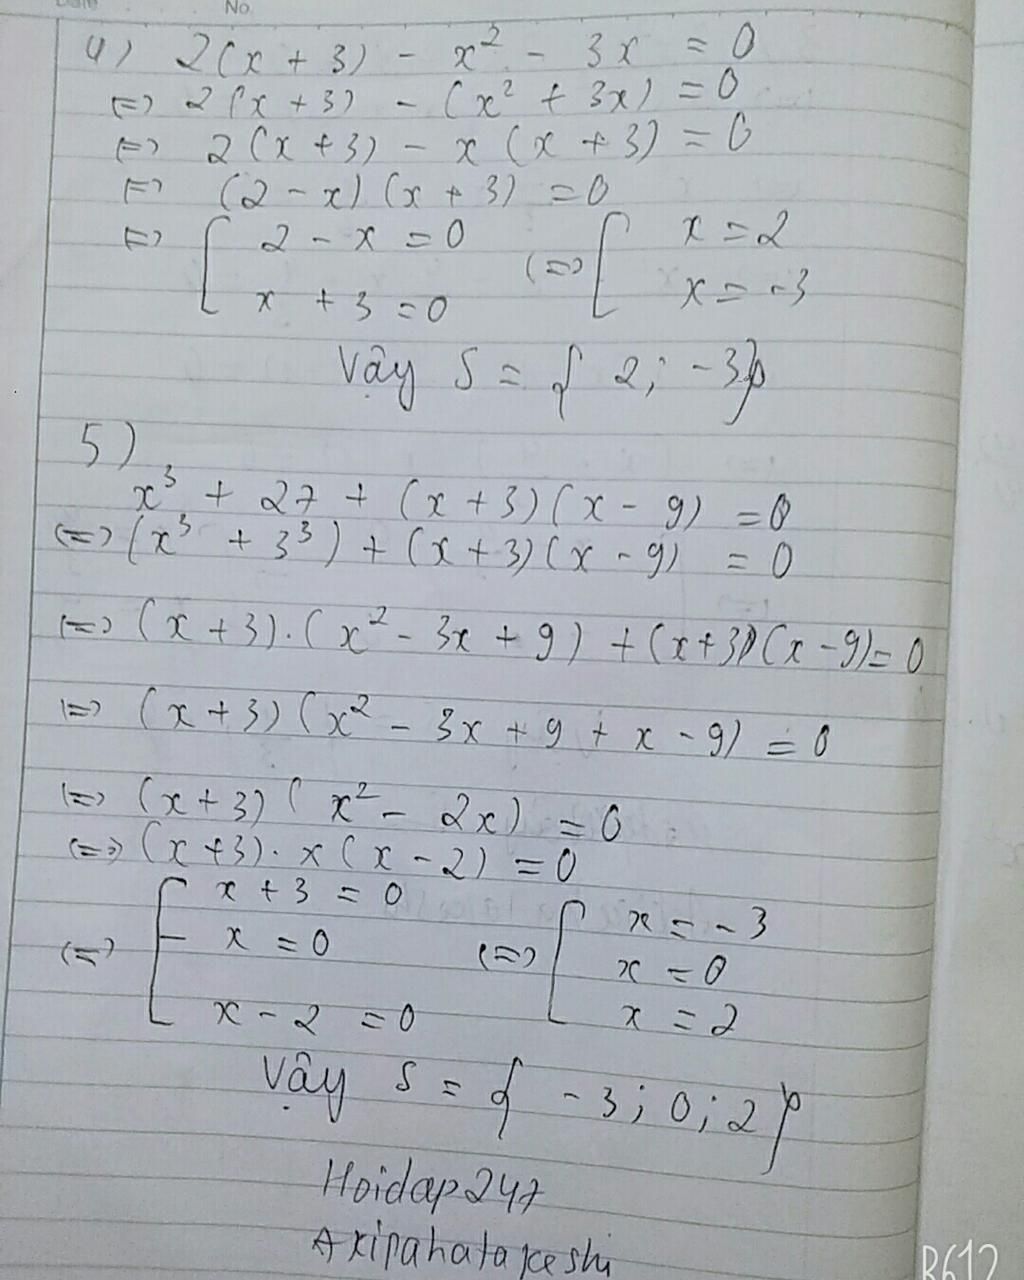 No
4) 2(x + 3) - x² - 3x = 0
(=) 2(x + 3) - (x² + 3x) = 0
(=) 2(x + 3) - x (x + 3) = 0
(=) (2 - x) (x + 3) = 0
(=) [ 2 - x = 0 (=) [ x = 2
x + 3 = 0 x = -3
Vậy S = { 2; -3}
5)
x³ + 27 + (x + 3)(x - 9) = 0
(=) (x³ + 3³) + (x + 3)(x - 9) = 0
(=) (x + 3).(x² - 3x + 9) + (x+3)(x - 9) = 0
(=) (x + 3)(x² - 3x + 9 + x - 9) = 0
(=) (x + 3)( x² - 2x) = 0
(=) (x + 3). x (x - 2) = 0
(=) [ x + 3 = 0 (=) [ x = -3
x = 0 x = 0
x - 2 = 0 x = 2
Vậy S = { -3; 0; 2}
Hoidap247
Axipahatakeshi
B612